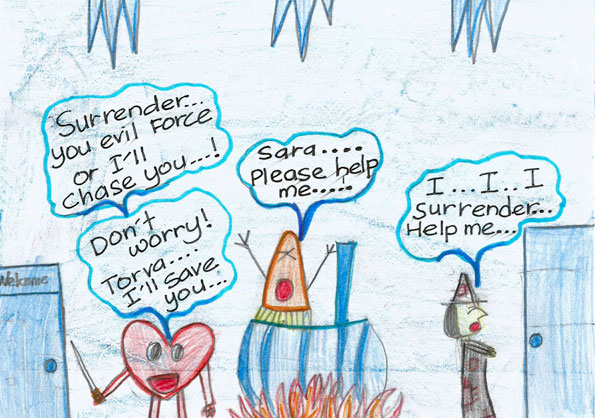 Surrender...
you evil Force
or I'll
chase you...!
Don't
worry!
Torva....
I'll save
you...
Sara....
Please help
me.....
I...I..I
Surrender...
Help me...
Welcome